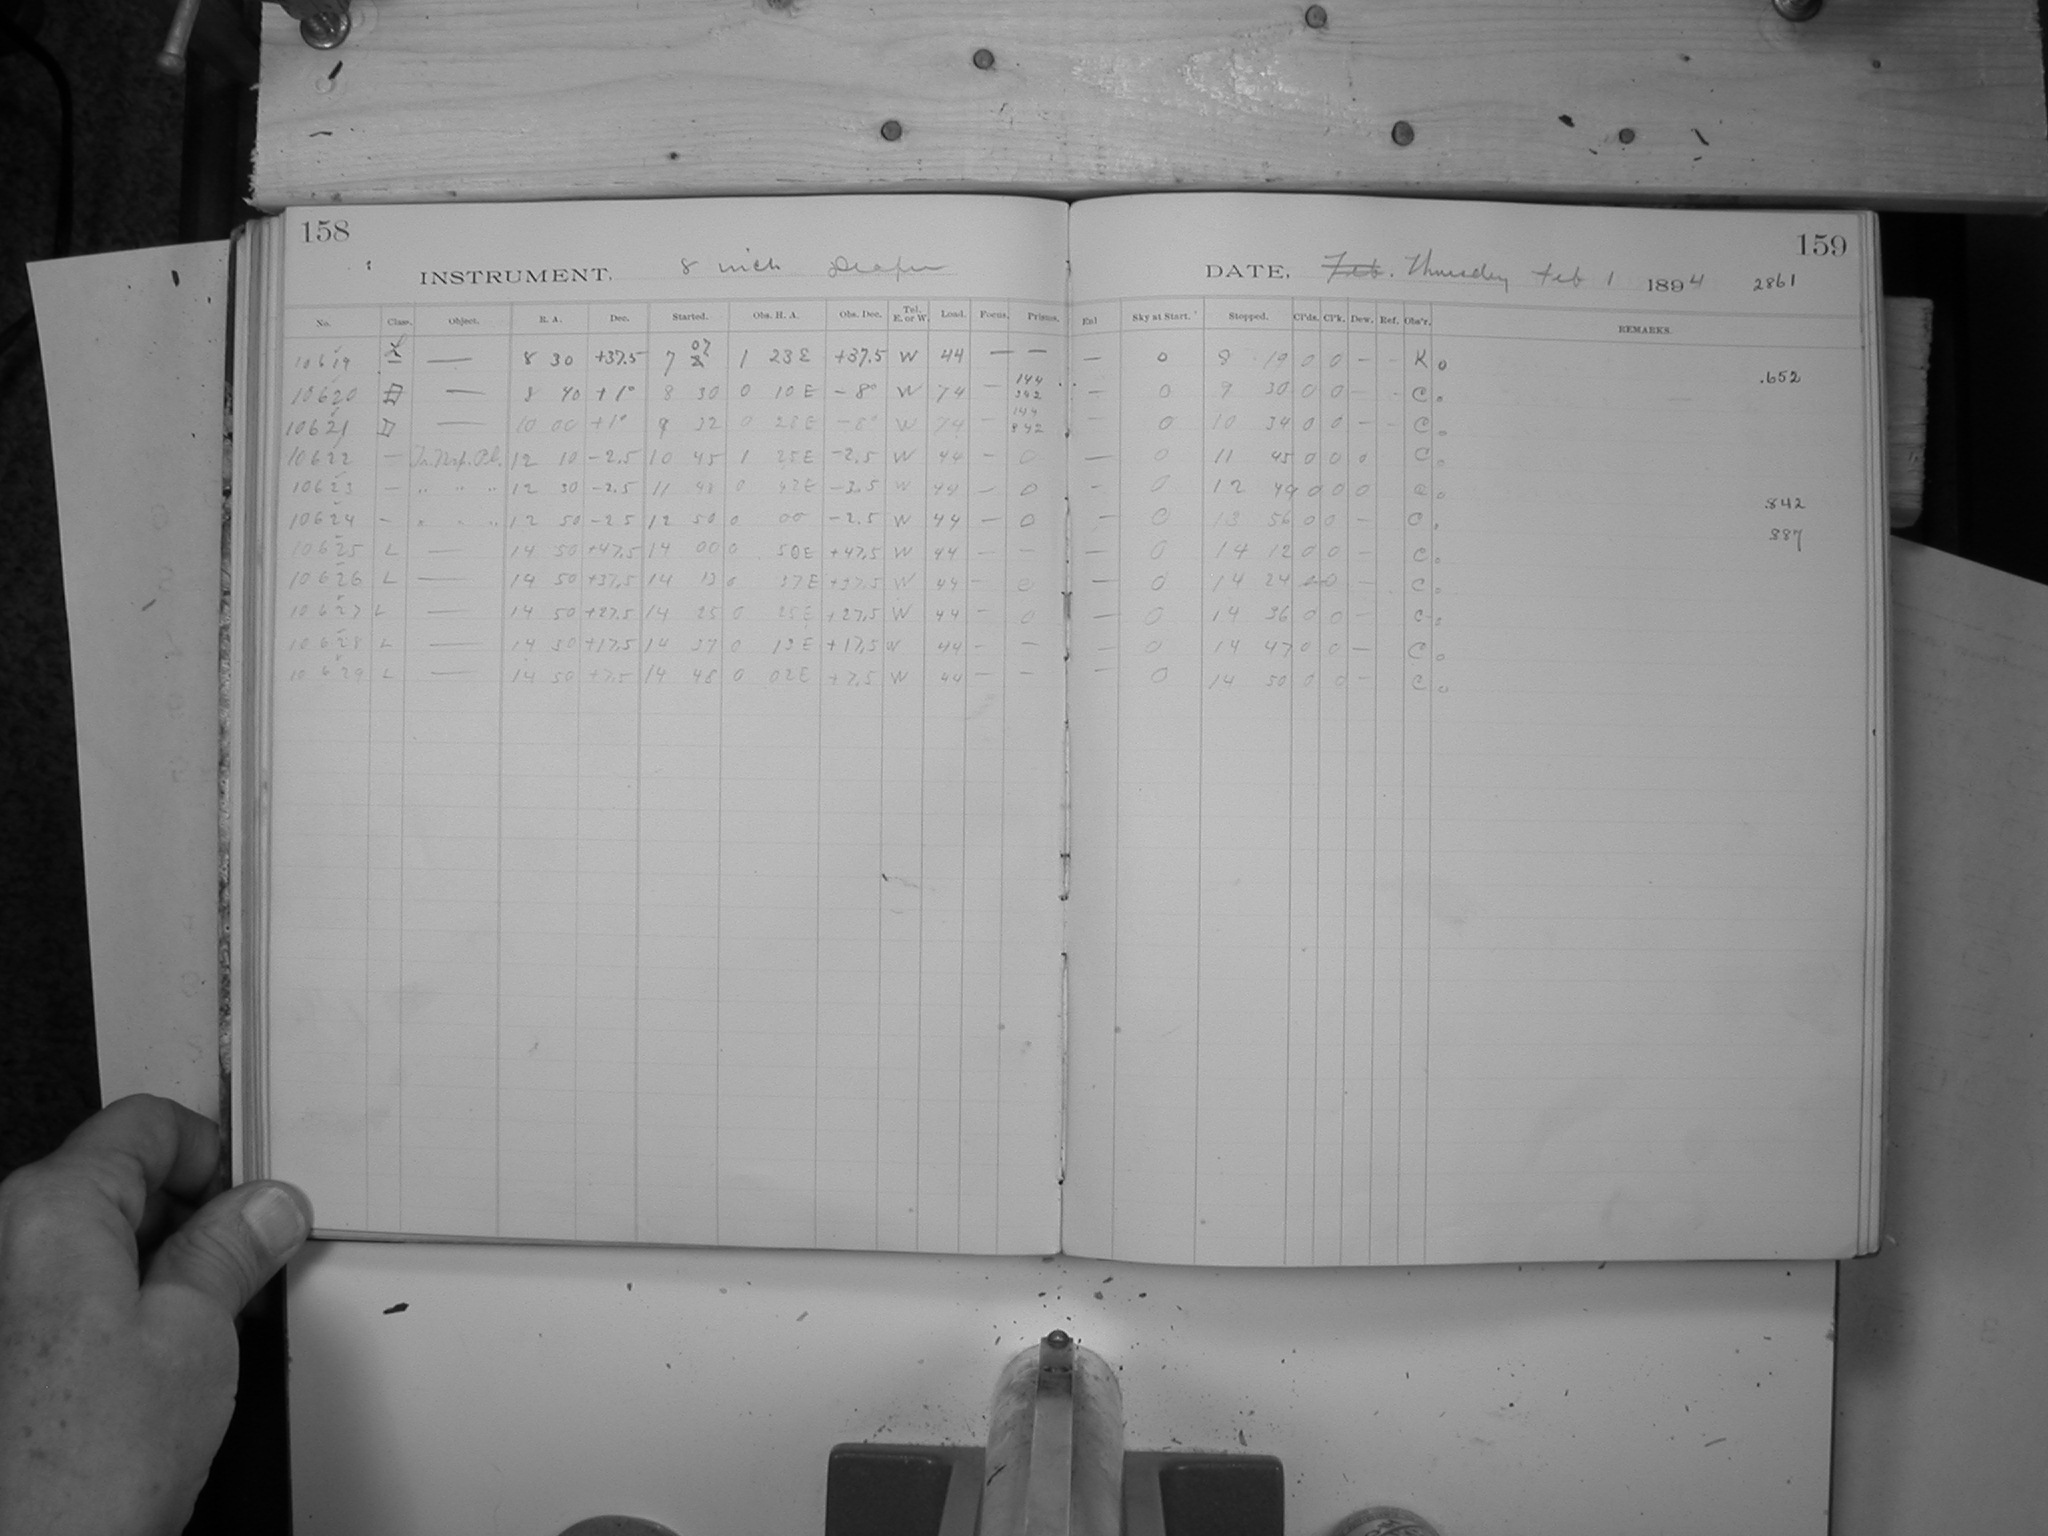 158
INSTRUMENT. 8 inch Draper
No. Class. Object. R. A. Dec. Started. Obs. H. A. Obs. Dec. Tel. E. or W. Load. Focus. Prisms.
10619 L — 8 30 +37.5 7 07 1 23 E +37.5 W 44 — —
10620 D — 8 40 +1° 8 30 0 10 E -8° W 74 - 144 342
10621 D — 10 00 +1° 9 32 0 28 E -8° W 74 - 144 842
10622 — 12 10 -2.5 10 45 1 25 E -2.5 W 44 - 0
10623 — " " " 12 30 -2.5 11 48 0 42 E -2.5 W 44 — 0
10624 - " " " 12 50 -2.5 12 50 0 00 -2.5 W 44 — 0
10625 L — 14 50 +47.5 14 00 0 50 E +47.5 W 44 - -
10626 L — 14 50 +37.5 14 13 0 37 E +37.5 W 44 - 0
10627 L — 14 50 +27.5 14 25 0 25 E +27.5 W 44 - 0
10628 L — 14 50 +17.5 14 37 0 13 E +17.5 W 44 - -
10629 L — 14 50 +7.5 14 48 0 02 E +7.5 W 44 — -
159
DATE. Feb. Thursday Feb 1 1894 2861
Enl Sky at Start. Stopped. Cl'ds. Cl'k. Dew. Ref. Obs'r. REMARKS.
— 0 8 19 0 0 — - K 0
.652
— 0 9 30 0 0 — - C 0
0 10 34 0 0 — - C 0
— 0 11 45 0 0 0 C 0
- 0 12 49 0 0 0 C 0
.842
— 0 13 56 0 0 — C 0
887
— 0 14 12 0 0 — C 0
— 0 14 24 0 — C 0
— 0 14 36 0 0 — C 0
— 0 14 47 0 0 — C 0
— 0 14 50 0 0 — C 0